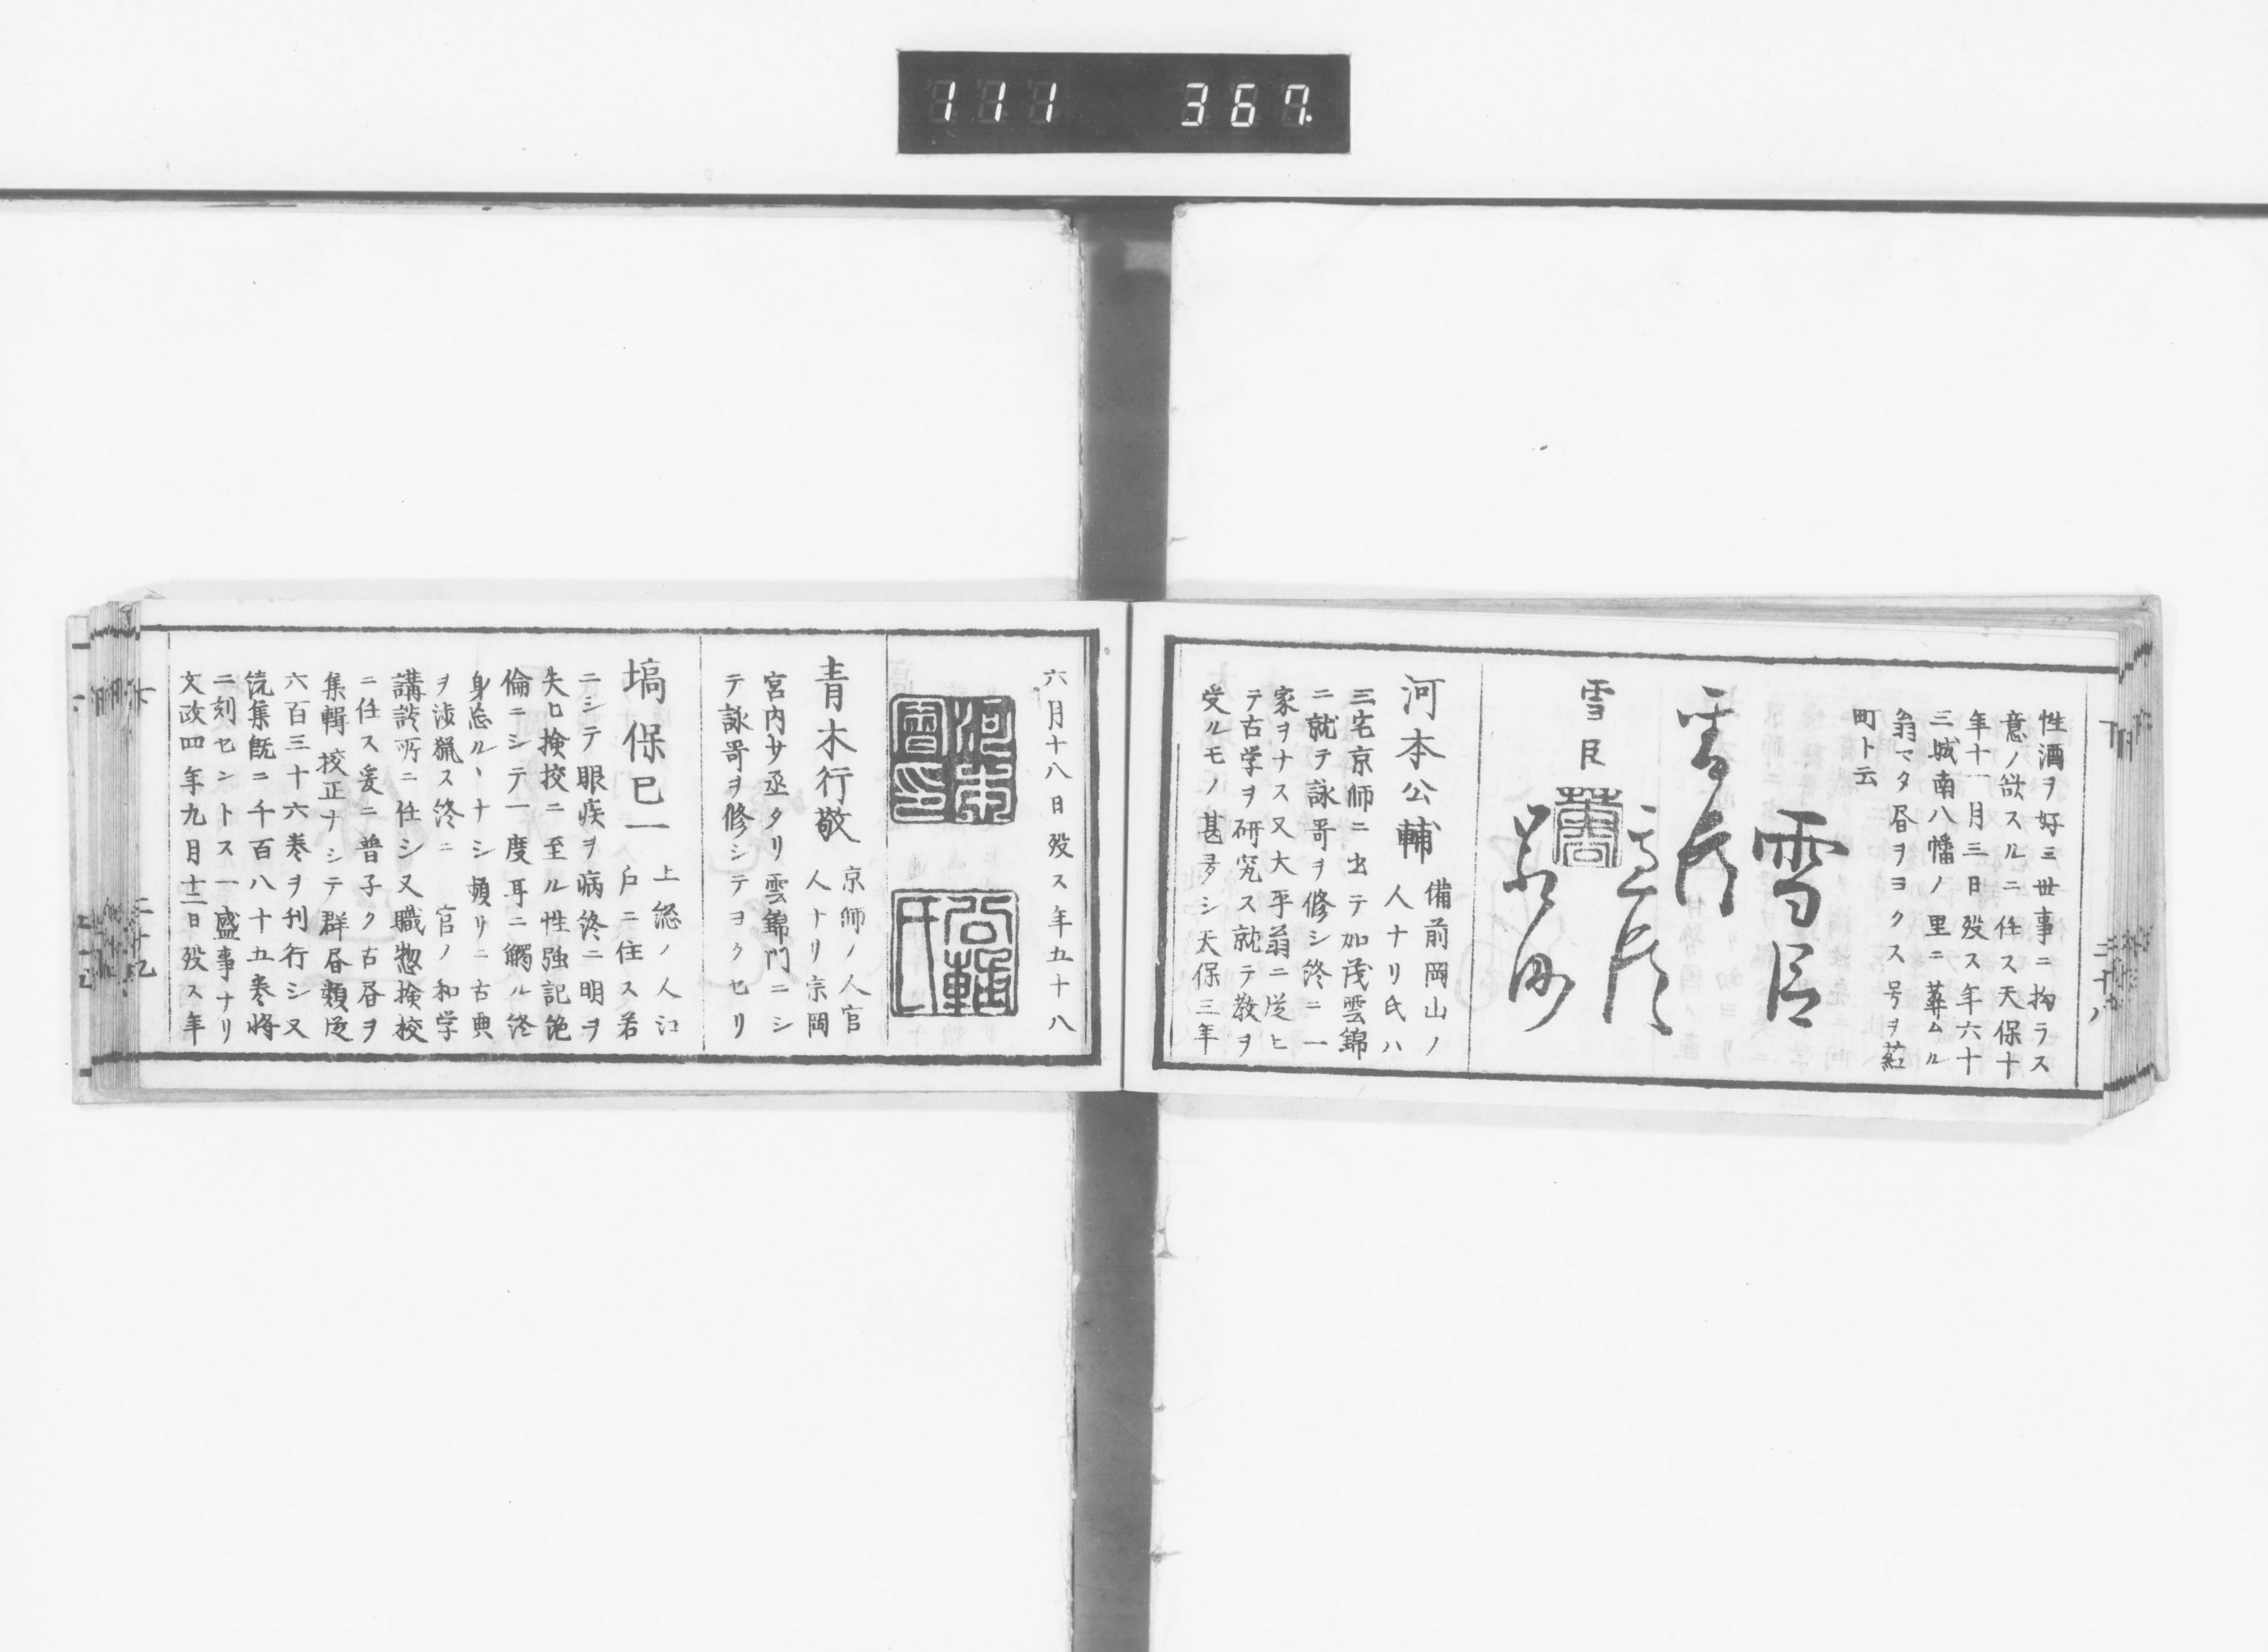 111 367.
性酒ヲ好ミ世事ニ拘ラス
意ノ欲スルニ任ス天保十
年十一月三日歿ス年六十
三城南八幡ノ里ニ葬ムル
翁マタ昼ヲヨクス号ヲ葒
町ト云
雪臣
雪臣
河本公輔
備前岡山ノ
人ナリ氏ハ
三宅京師ニ出テ加茂雲錦
ニ就テ詠哥ヲ修シ終ニ一
家ヲナス又大平翁ニ従ヒ
テ古学ヲ研究ス就テ教ヲ
受ルモノ甚多シ天保三年
六月十八日歿ス年五十八
河本
公輔
青木行敬
京師ノ人官
人ナリ宗岡
宮内少丞タリ雲錦門ニシ
テ詠哥ヲ修シテヨクセリ
塙保己一
上総ノ人江
戸ニ住ス若
ニシテ眼疾ヲ病終ニ明ヲ
失ヒ検校ニ至ル性強記絶
倫ニシテ一度耳ニ觸ル終
身忘ルヽナシ頻リニ古典
ヲ渉猟ス終ニ官ノ和学
講談所ニ任シ又職惣検校
ニ任ス爰ニ普子ク古昼ヲ
集輯校正ナシテ群昼類従
六百三十六巻ヲ刊行シ又
続集既ニ千百八十五巻將
ニ刻セントス一盛事ナリ
文政四年九月十二日歿ス年